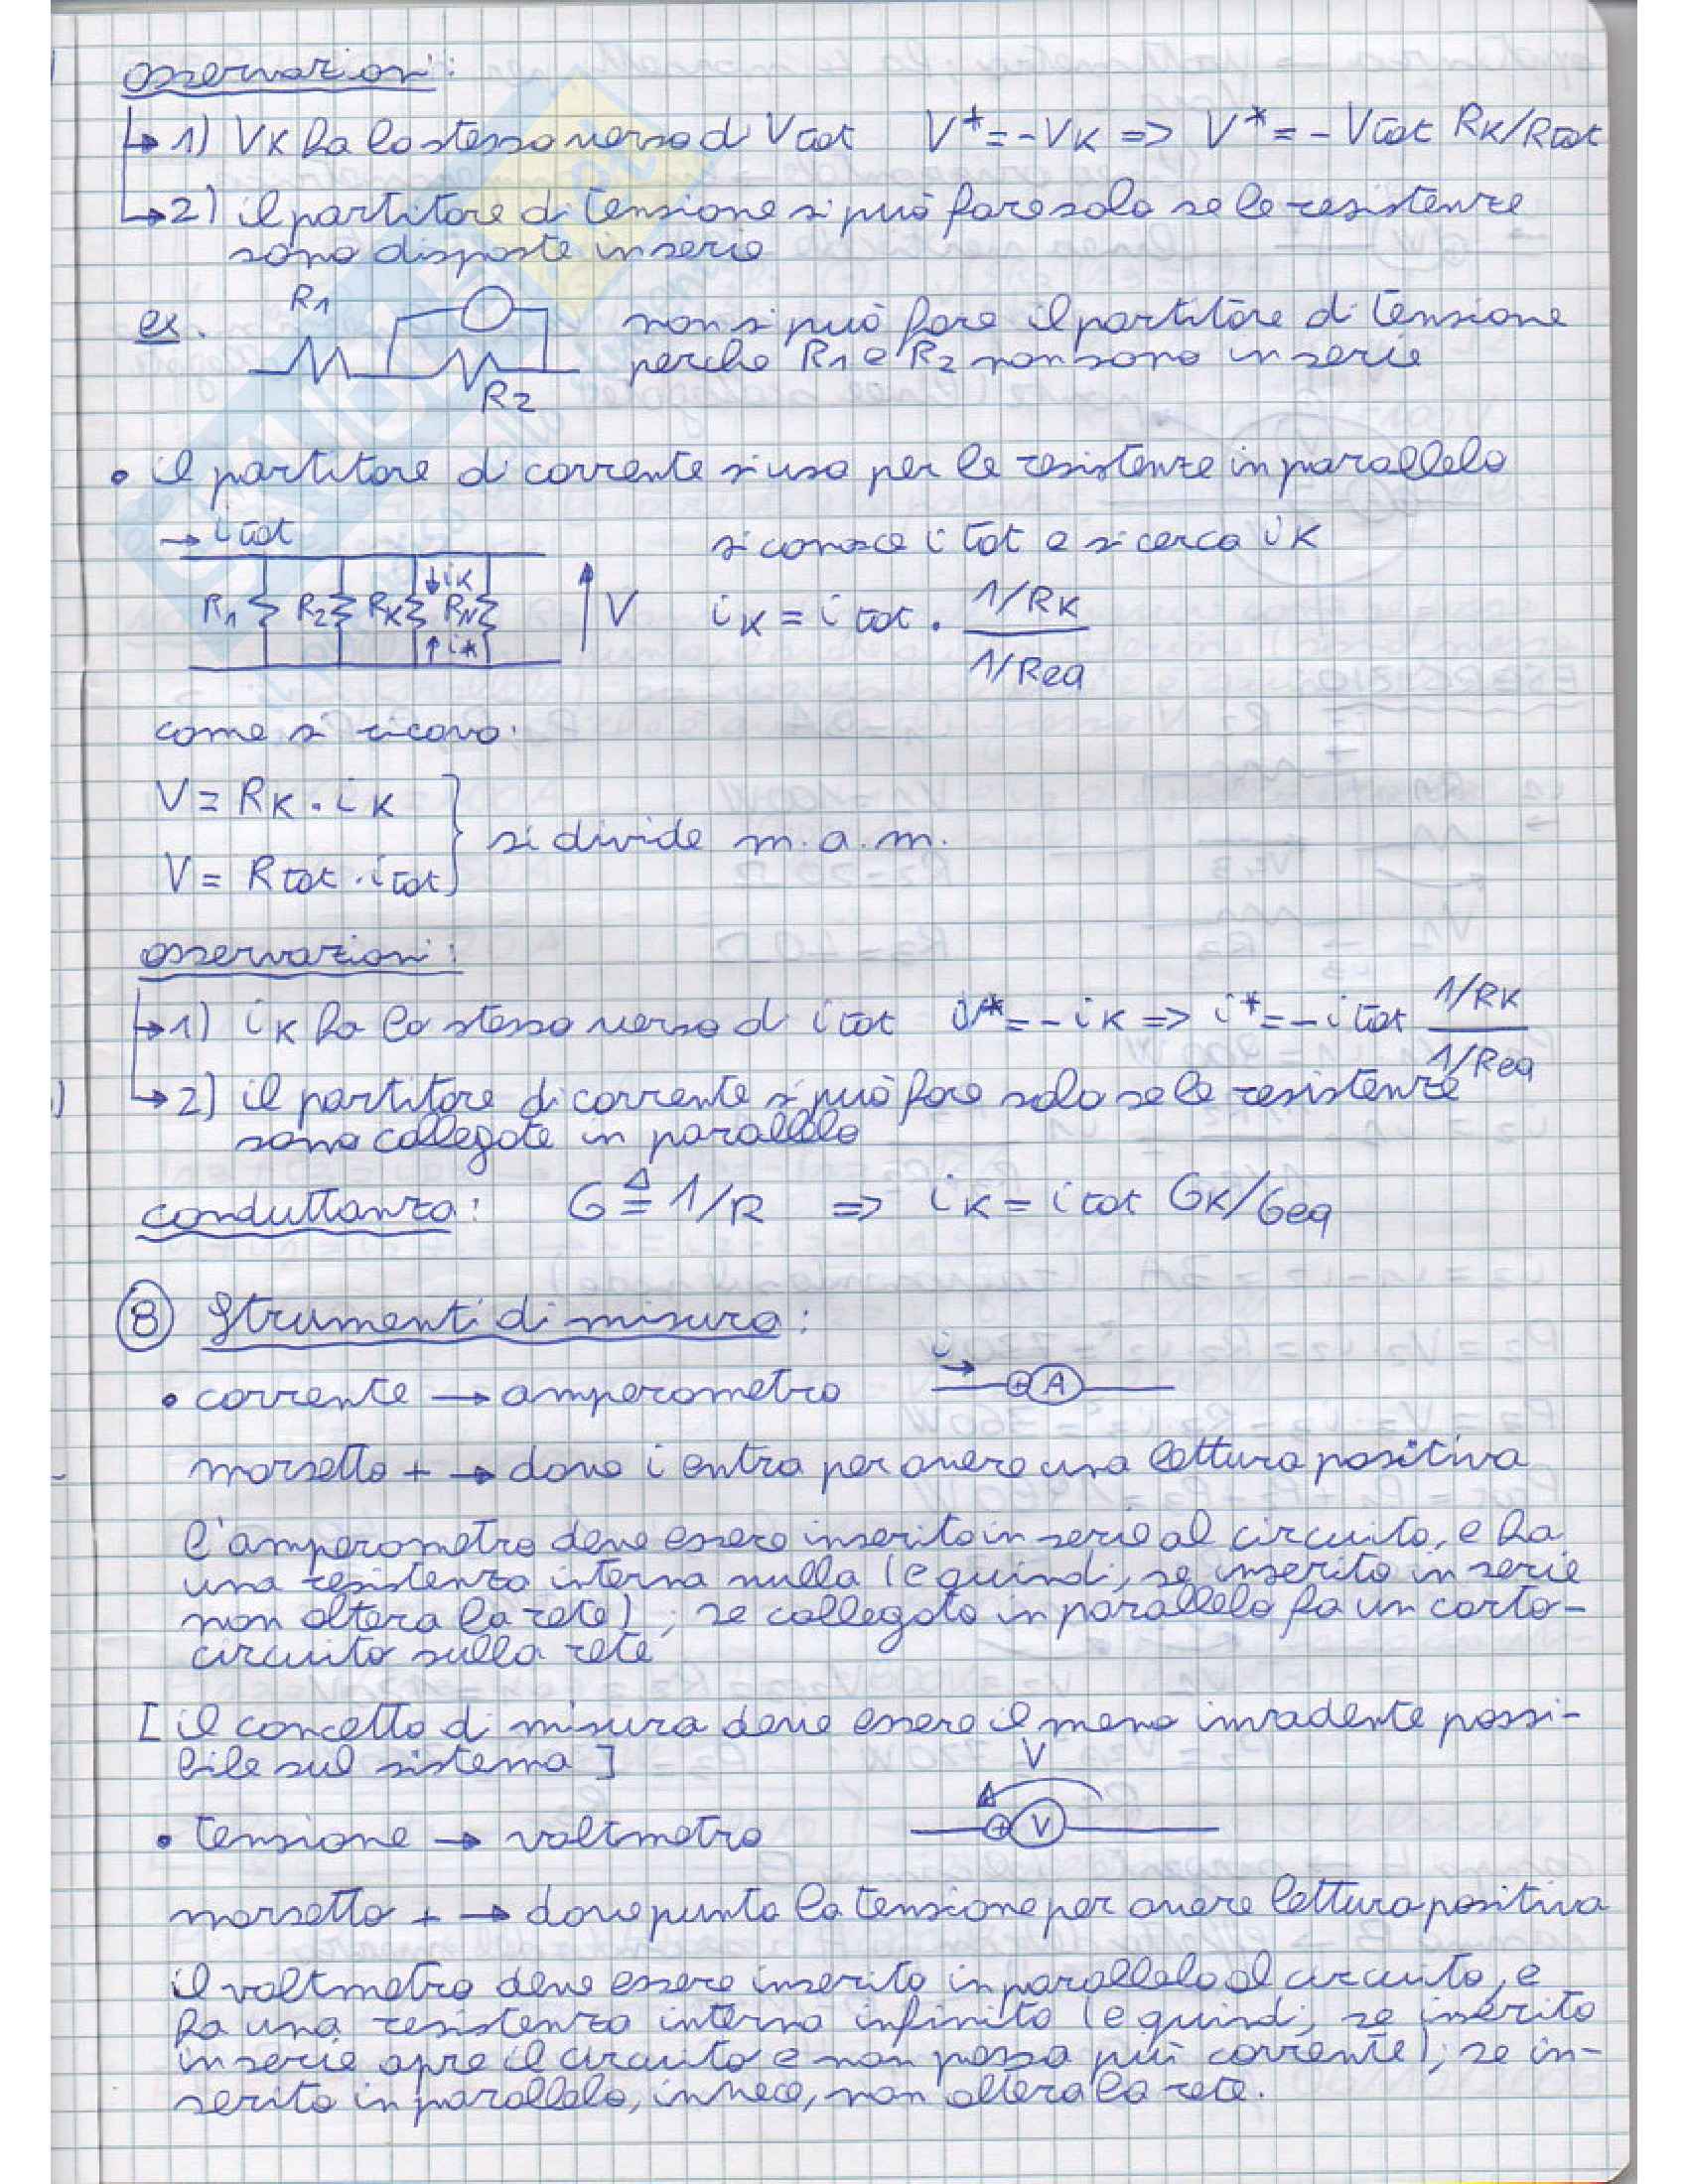 osservazioni:
1) VK ha lo stesso verso di Vtot V* = -VK => V* = - Vtot RK/Rtot
2) il partitore di tensione si può fare solo se le resistenze
sono disposte in serie
ex. R1 R2
non si può fare il partitore di tensione
perché R1 e R2 non sono in serie
• il partitore di corrente si usa per le resistenze in parallelo
→ i tot
R1 R2 RK iK RN i* V
si conosce i tot e si cerca iK
iK = i tot · 1/RK / 1/Req
come si ricava:
V = RK · iK
V = Rtot · i tot
si divide m. a. m.
osservazioni:
1) iK ha lo stesso verso di i tot i* = - iK => i* = - i tot 1/RK / 1/Req
2) il partitore di corrente si può fare solo se le resistenze
sono collegate in parallelo
conduttanza: G ≜ 1/R => iK = i tot GK/Geq
8 Strumenti di misura:
• corrente → amperometro i → + A
morsetto + → dove i entra per avere una lettura positiva
l'amperometro deve essere inserito in serie al circuito, e ha
una resistenza interna nulla (e quindi, se inserito in serie
non altera la rete) ; se collegato in parallelo fa un corto-
circuito sulla rete
[ il concetto di misura deve essere il meno invadente possi-
bile sul sistema ]
• tensione → voltmetro V + V
morsetto + → dove punta la tensione per avere lettura positiva
il voltmetro deve essere inserito in parallelo al circuito, e
ha una resistenza interna infinita (e quindi, se inserito
in serie apre il circuito e non passa più corrente); se in-
serito in parallelo, invece, non altera la rete.